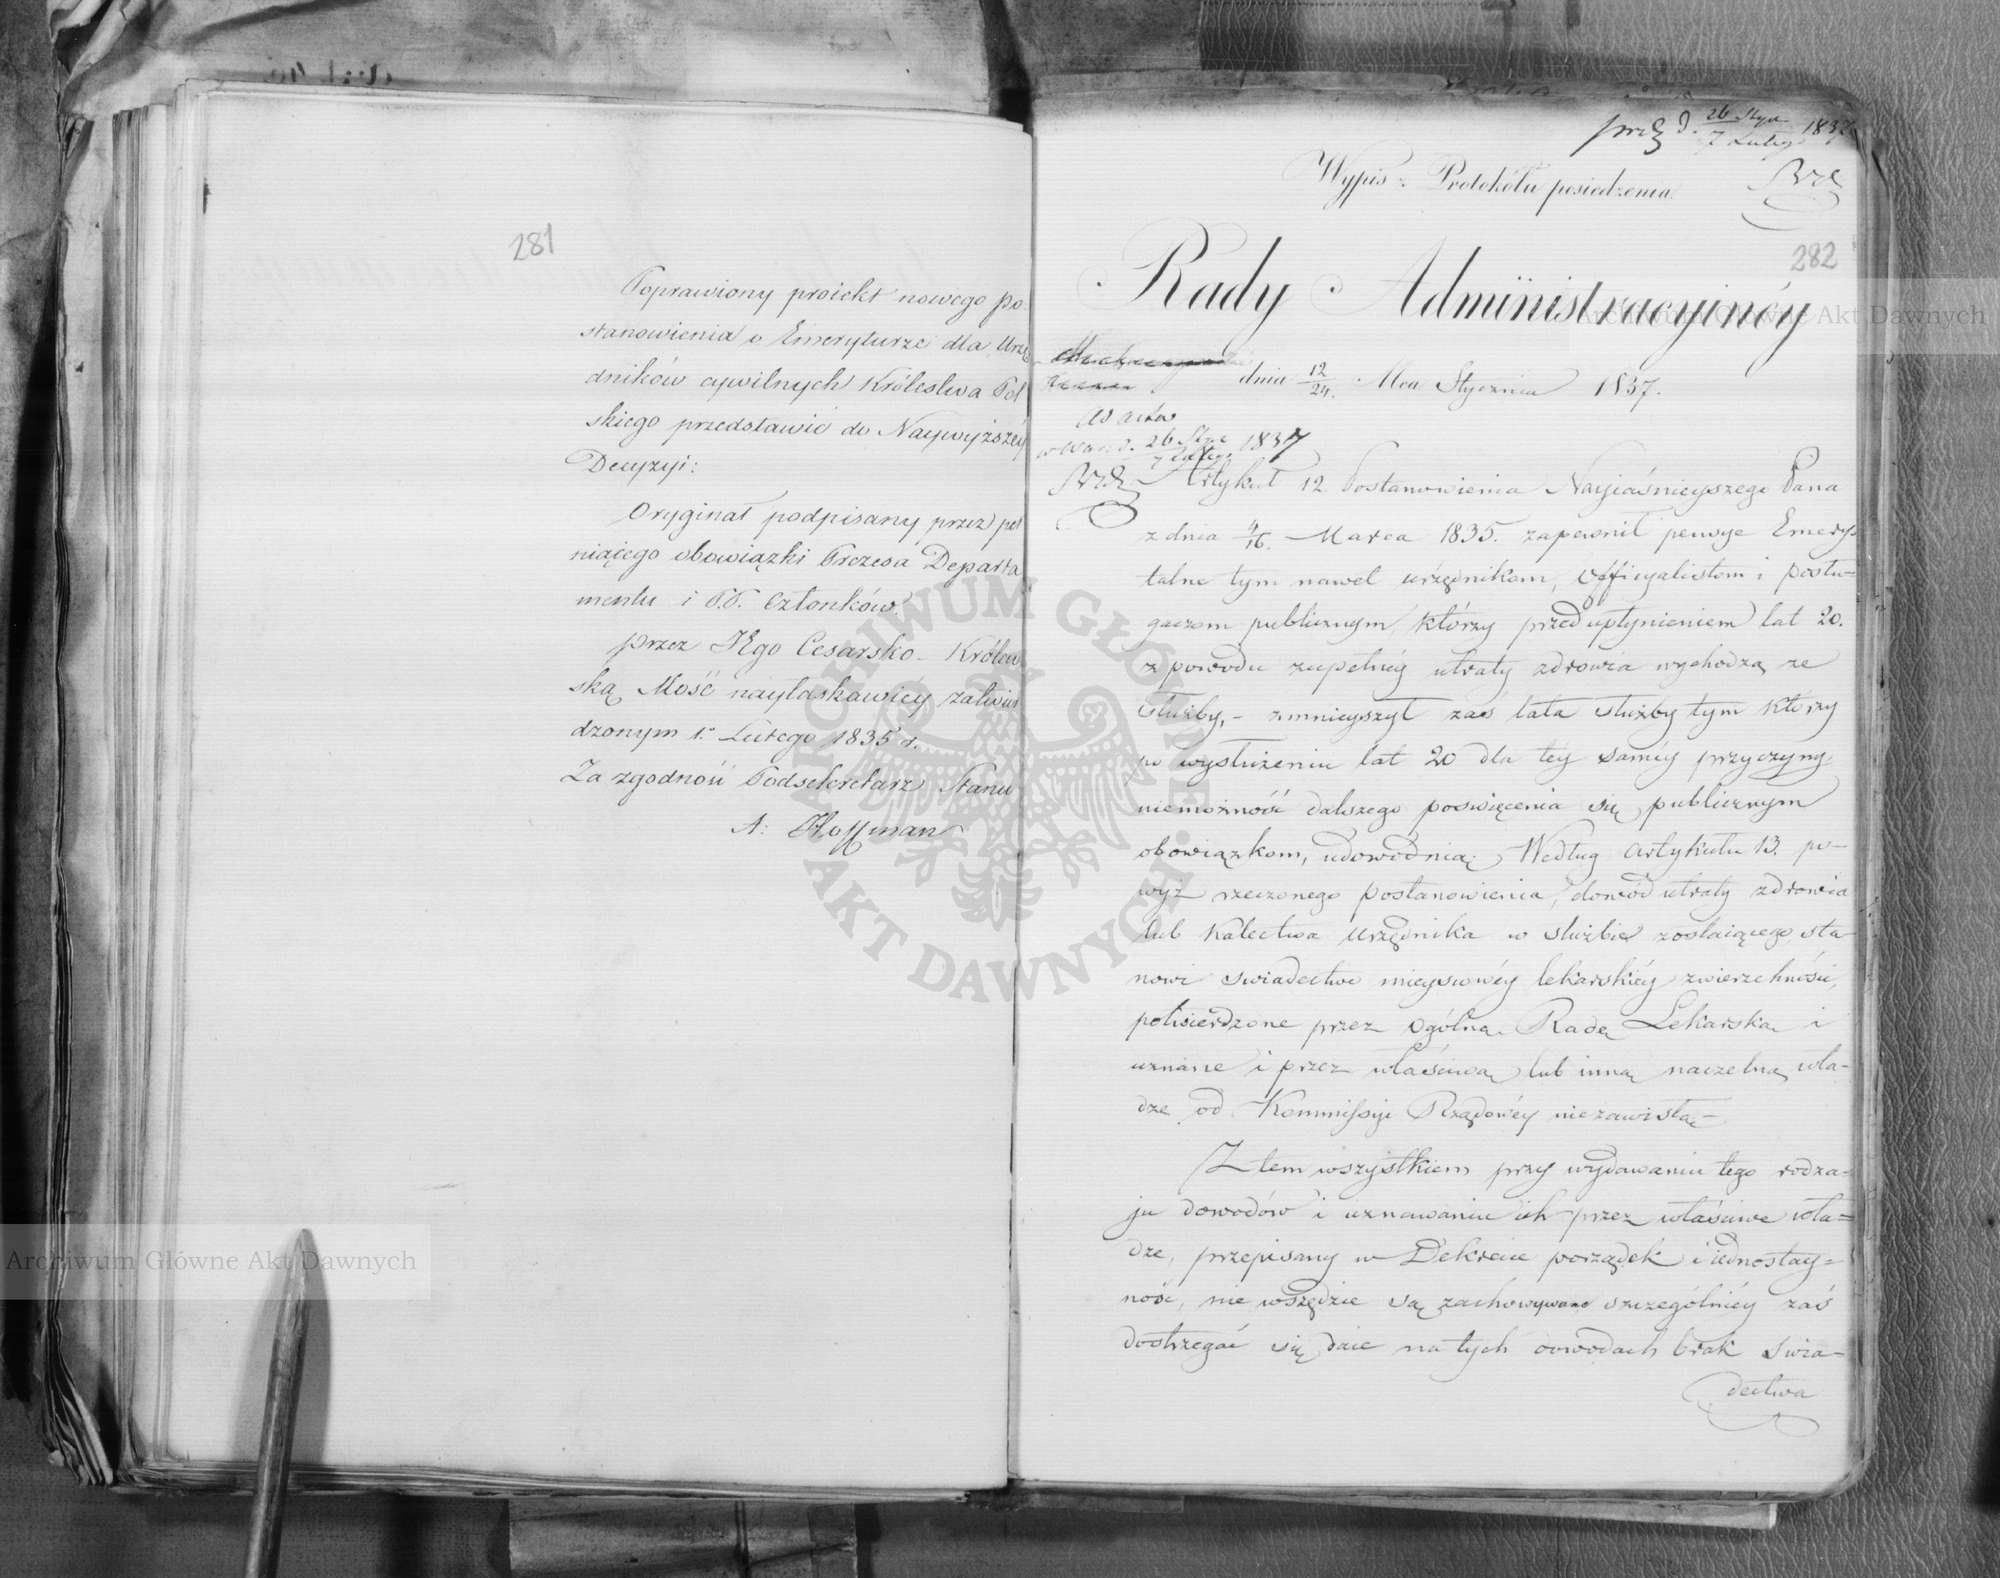 281
Poprawiony proiekt nowego po-
stanowienia o Emeryturze dla Urzę
dników cywilnych Królestwa Pol
skiego przedstawić do Naywyższéy
Decyzyi:
Oryginał podpisany przez peł
niącego obowiązki Prezesa Departa
mentu i P.P. Członków.
przez JEgo Cesarsko-Królew
ską Mość nayłaskawiey zatwier
dzonym 1. Lutego 1835 r.
Za zgodność Podsekretarz Stanu
A: Hoffman
prez d. 26 Stycz / 7 Lutego 1837
Wypis z Protokółu posiedzenia
282
Rady Administracyinéy
dnia 12/24. Mca Stycznia 1837.
ad acta
w War: d. 26 Stycz / 7 Lutego 1837
Artykuł 12. Postanowienia Nayiaśnieyszego Pana
z dnia 4/16. Marca 1835. zapewnił pensye Emery-
talne tym nawet urzędnikom, Officyalistom i posłu-
gaczom publicznym, którzy przed upłynieniem lat 20.
z powodu zupełnéy utraty zdrowia wychodzą ze
służby, - zmnieyszył zaś lata służby tym którzy
po wysłużeniu lat 20 dla téy saméy przyczyny
niemożność dalszego poswięcenia się publicznym
obowiązkom, udowodnią; Według artykułu 13. po-
wyż rzeczonego postanowienia, dowód utraty zdrowia
lub Kalectwa urzędnika w służbie zostaiącego, sta-
nowi swiadectwo mieyscowéy lekarskiéy zwierzchności,
potwierdzone przez Ogólną Radę Lekarską i
uznane i przez właściwą lub inną naczelną wła-
dzę od Kommissyi Rządowéy niezawisłą -
Z tem wszystkiem przy wydawaniu tego rodza-
ju dowodów i uznawaniu ich przez właściwe wła-
dze, przepisany w Dekrecie porządek i iednostay-
ność, nie wszędzie są zachowywane szczególniéy zaś
dostrzegać się daie na tych dowodach brak swia-
dectwa
ARCHIWUM GŁÓWNE AKT DAWNYCH
Archiwum Główne Akt Dawnych
Archiwum Główne Akt Dawnych